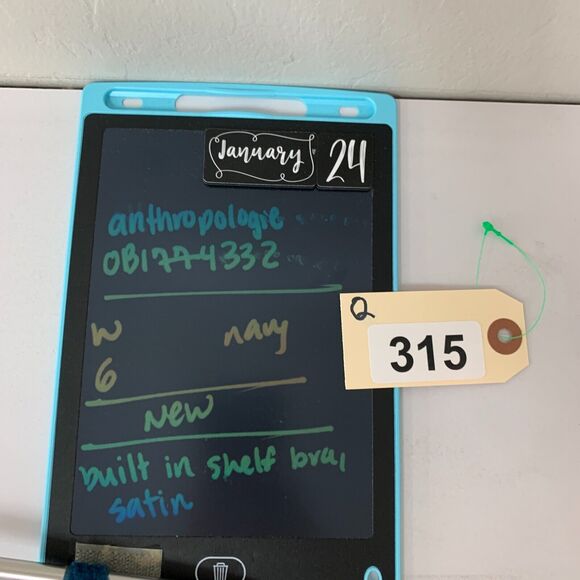 January 24
anthropologie
OB1774332
W navy
6
New
built in shelf bra,
satin
Q
315